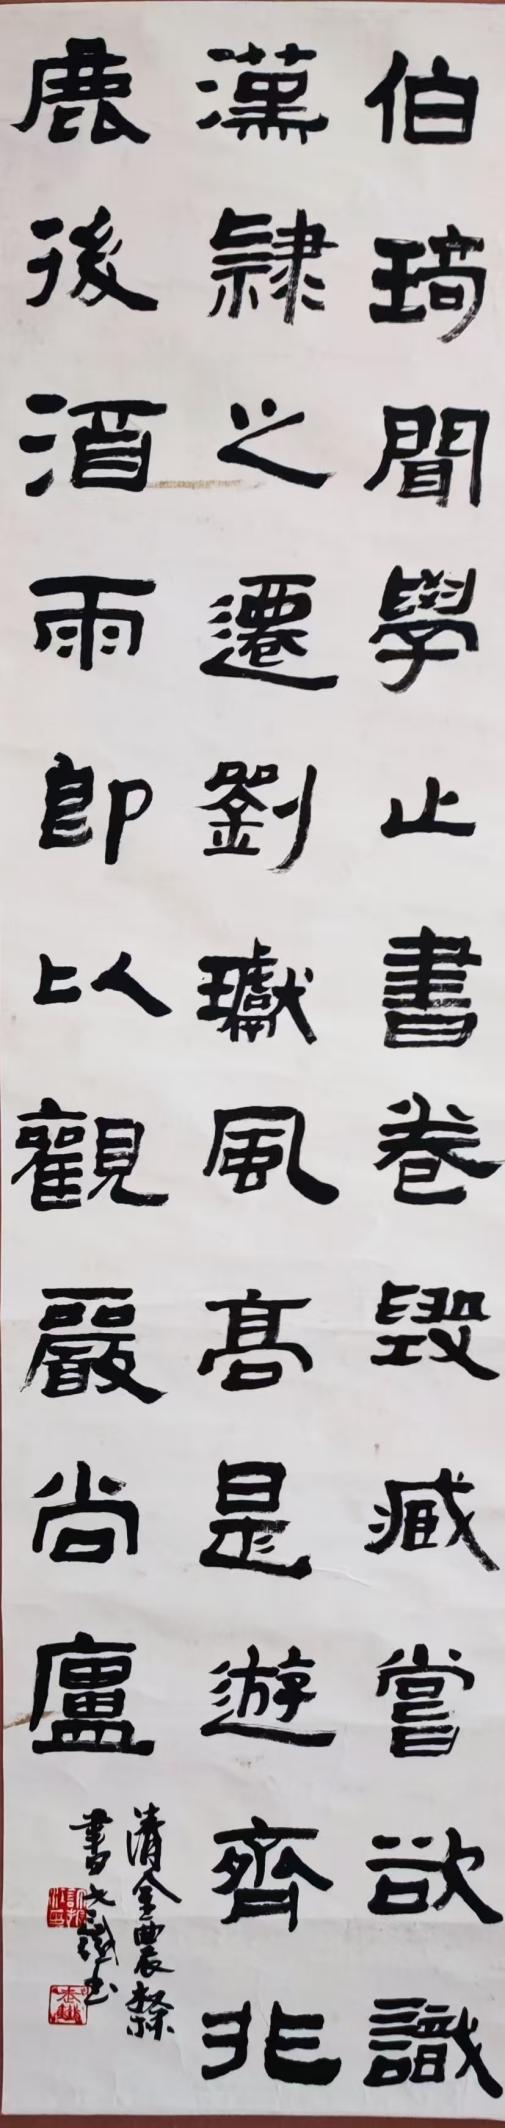 伯琦聞學止書卷毀臧嘗欲識
漢隸之遷劉瓛風高是遊齊非
鹿後酒雨即以觀嚴尚廬
清金農隸
書大鐵書